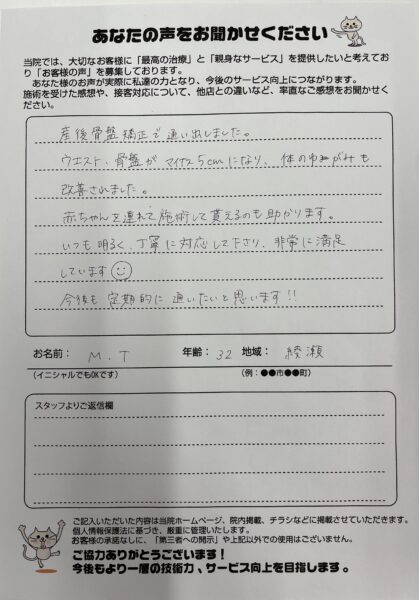 あなたの声をお聞かせください
当院では、大切なお客様に「最高の治療」と「親身なサービス」を提供したいと考えてお
り「お客様の声」を募集しております。
あなた様のお声が実際に私達の力となり、今後のサービス向上につながります。
施術を受けた感想や、接客対応について、他店との違いなど、率直なご感想をお聞かせく
ださい。
産後骨盤矯正で通い出しました。
ウエスト、骨盤がマイナス5cmになり、体のゆがみも
改善されました。
赤ちゃんを連れて施術して貰えるのも助かります。
いつも明るく、丁寧に対応して下さり、非常に満足
しています
今後も定期的に通いたいと思います!!
お名前： M.T 年齢： 32 地域： 綾瀬
(イニシャルでもOKです) (例：●●市●●町)
スタッフよりご返信欄
ご記入いただいた内容は当院ホームページ、院内掲載、チラシなどに掲載させていただきます。
個人情報保護法に基づき、厳重に管理いたします。
お客様の承諾なしに、「第三者への開示」や上記以外での使用はございません。
ご協力ありがとうございます！
今後もより一層の技術力、サービス向上を目指します。